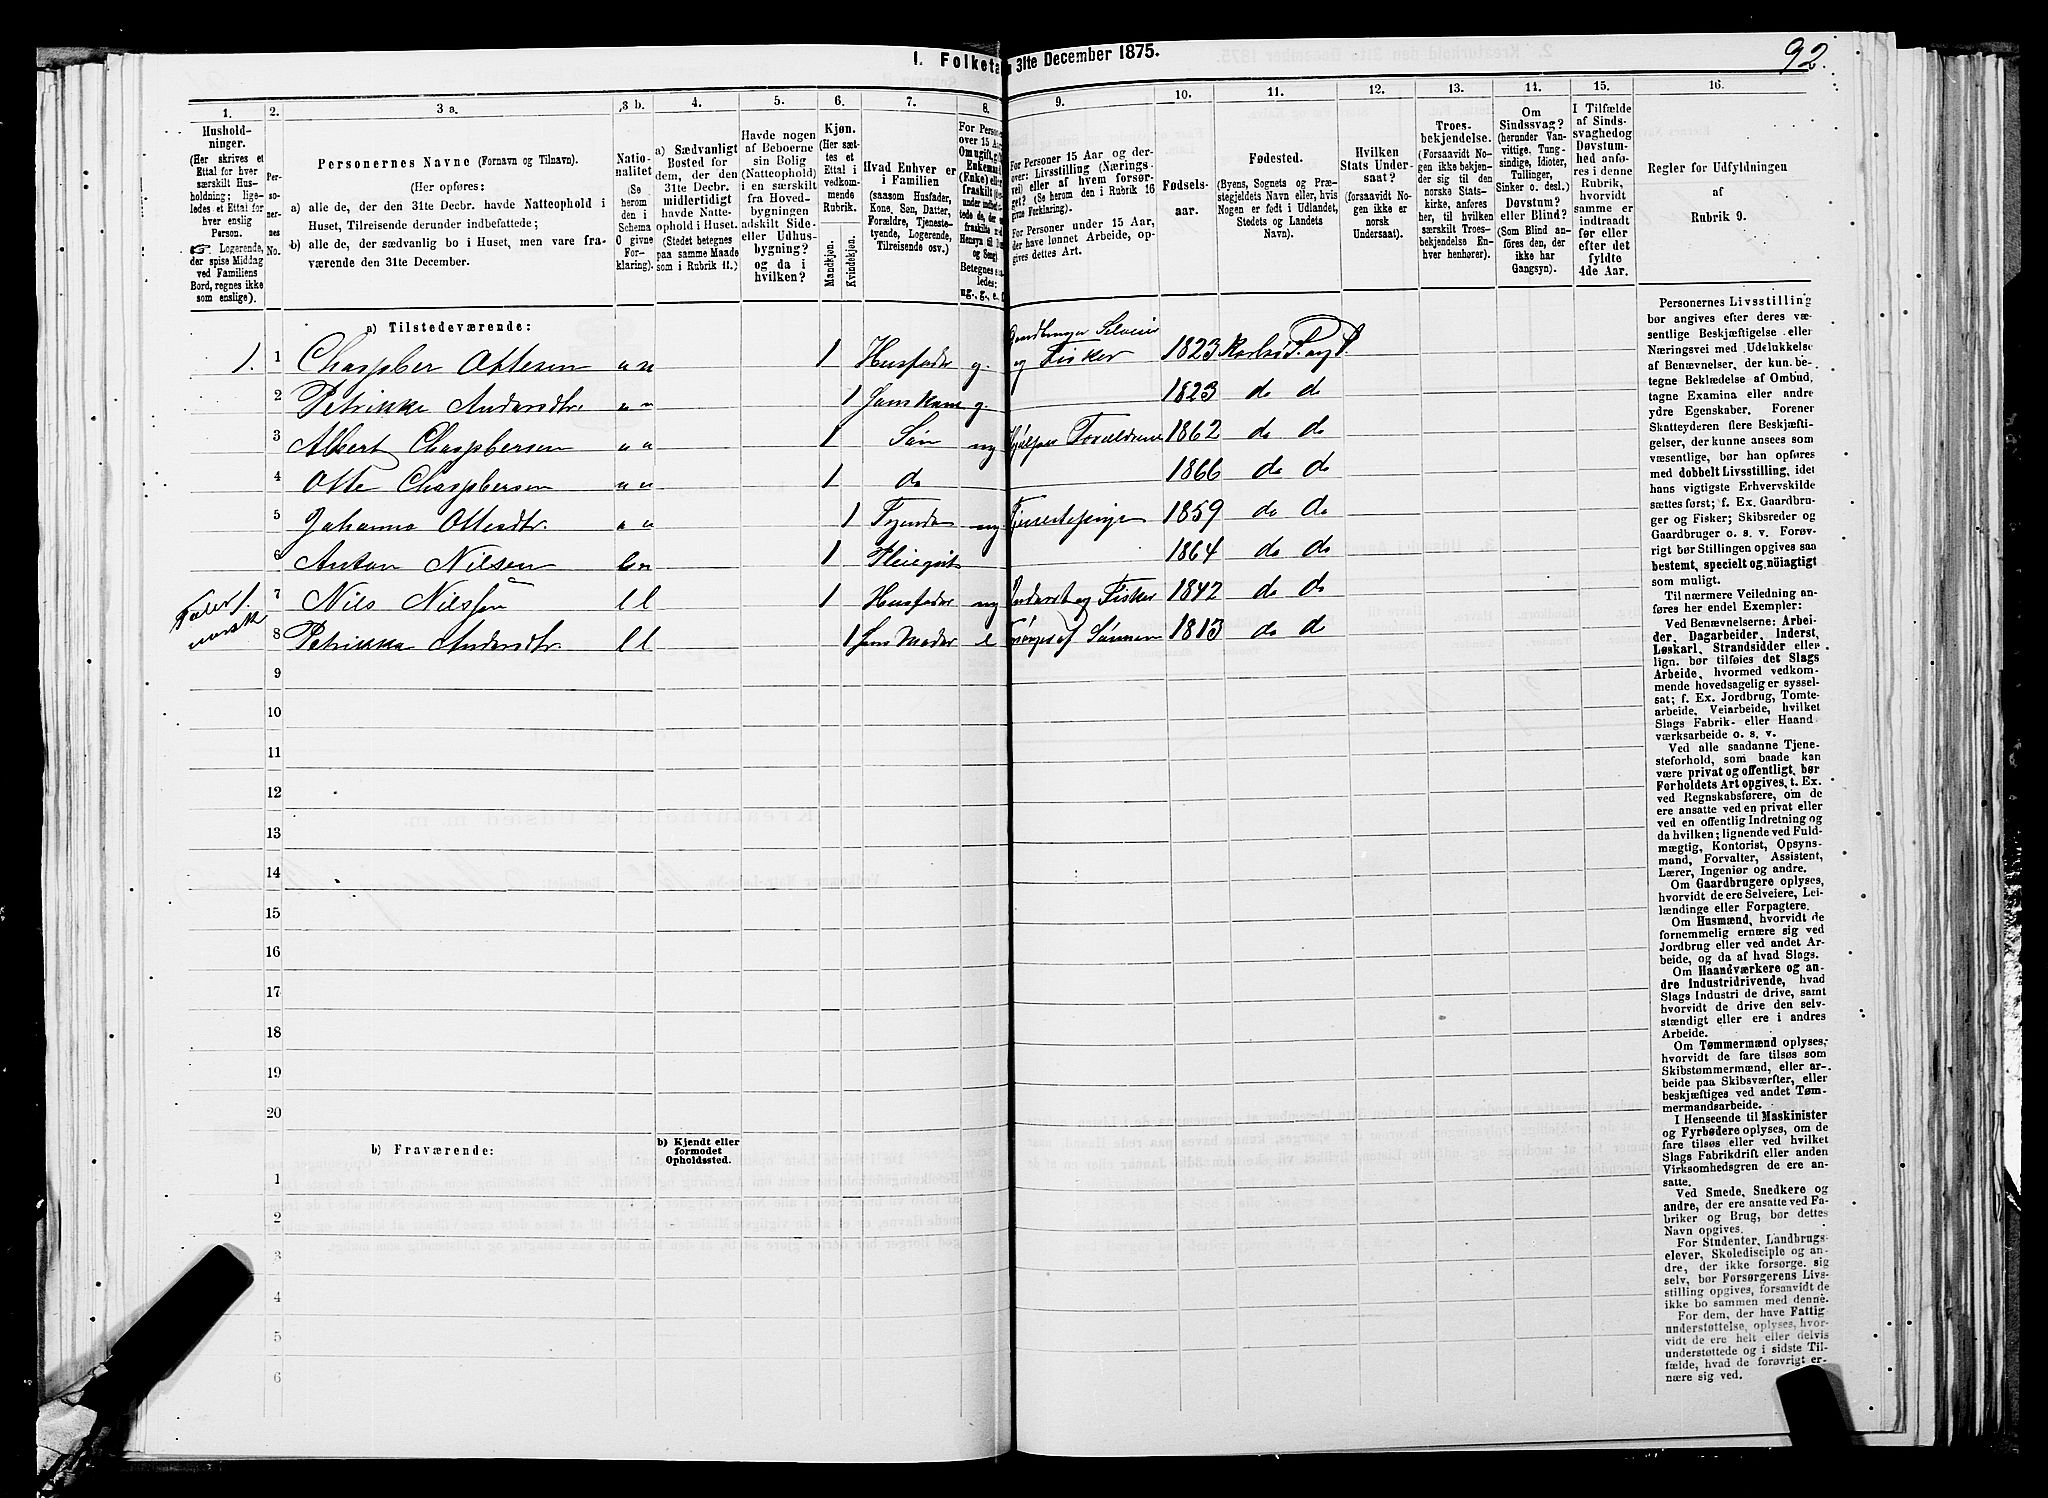 92.
I. Folketa
31te December 1875.
1.
Hushold-
ninger.
(Her skrives et
Ettal for hver
særskilt Hus-
holdning; lige-
ledes et Ettal for
hver enslig
Person.
Logerende,
der spise Middag
ved Familiens
Bord, regnes ikke
som enslige).
2.
Per-
so-
ner-
nes
No.
3 a.
Personernes Navne (Fornavn og Tilnavn).
(Her opføres:
a) alle de, der den 31te Decbr. havde Natteophold i
Huset, Tilreisende derunder indbefattede;
b) alle de, der sædvanlig bo i Huset, men vare fra-
værende den 31te December.
3 b.
Natio-
nalitet
(Se
herom
den i
Schema
O givne
For-
klaring).
4.
a) Sædvanligt
Bosted for
dem, der den
31te Decbr.
midlertidigt
havde Natte-
ophold i Huset.
(Stedet betegnes
paa samme Maade
som i Rubrik 11.)
5.
Havde nogen
af Beboerne
sin Bolig
(Natteophold)
i en særskilt
fra Hoved-
bygningen
adskilt Side-
eller Udhus-
bygning?
og da i
hvilken?
6.
Kjøn.
(Her sæt-
tes et
Ettal i
vedkom-
mende
Rubrik.
Mandkjøn.
Kvindekjøn.
7.
Hvad Enhver er
i Familien
(saasom Husfader,
Kone, Søn, Datter,
Forældre, Tjeneste-
tyende, Logerende,
Tilreisende osv.)
8.
For Person
over 15 Aar
Om ugift, g
Enkemand
(Enke) eller
fraskilt
9.
For Personer 15 Aar og der-
over: Livsstilling (Nærings-
vei) eller af hvem forsør-
get? (Se herom den i Rubrik 16
givne Forklaring).
For Personer under 15 Aar,
der have lønnet Arbeide, op-
gives dettes Art.
10.
Fødsels-
aar.
11.
Fødested.
(Byens, Sognets og Præ-
stegjeldets Navn eller, hvis
Nogen er født i Udlandet,
Stedets og Landets
Navn).
12.
Hvilken
Stats Under-
saat?
(forsaavidt No-
gen ikke er
norsk
Undersaat).
13.
Troes-
bekjendelse.
(Forsaavidt No-
gen ikke bekjen-
der sig til den
norske Stats-
kirke, anføres
her, til hvilken
særskilt Troes-
bekjendelse En-
hver henhører).
14.
Om
Sindssvag?
(herunder Van-
vittige, Tung-
sindige, Idioter,
Tullinger,
Sinker o. desl.)
Døvstum?
eller Blind?
(Som Blind an-
føres den, der
ikke har
Gangsyn).
15.
I Tilfælde
af Sinds-
svaghed og
Døvstum-
hed anfø-
res i denne
Rubrik,
hvorvidt
samme er
indtraadt
før eller
efter det
fyldte
4de Aar.
16.
Regler for Udfyldningen
af
Rubrik 9.
a) Tilstedeværende:
1. 1 Chaspber Ottesen n n 1 Husfader g. Gaardbruger Selveier og Fisker 1823 Karlsø S. og P.
2 Petrikke Andersdtr. n n 1 Hans Kone g. 1823 do do
3 Albert Chaspbersen n n 1 Søn ug Hjælper Forældrene 1862 do do
4 Otte Chaspbersen n n 1 do 1866 do do
5 Johanna Ottesdtr. n n 1 ug 1859 do do
6 Anton Nilsen b n 1 1864 do do
1. 7 Nils Nilssen l l 1 Husfader ug Inderst og Fisker 1842 do do
Taler norsk
8 Petrikka Andersdtr. l l 1 Hans Moder e Forsørges af Sønnen 1813 do do
9
10
11
12
13
14
15
16
17
18
19
20
b) Fraværende:
b) Kjendt eller
formodet
Opholdssted.
1
2
3
4
5
6
Personernes Livsstilling
bør angives efter deres væ-
sentlige Beskjæftigelse eller
Næringsvei med Udelukkelse
af Benævnelser, der kun be-
tegne Beklædelse af Ombud,
tagne Examina eller andre
ydre Egenskaber. Forener
Skatteyderen flere Beskjæfti-
gelser, der kunne ansees som
væsentlige, bør han opføres
med dobbelt Livsstilling, idet
hans vigtigste Erhvervskilde
sættes først; f. Ex. Gaardbru-
ger og Fisker; Skibsreder og
Gaardbruger o. s. v. Forøv-
rigt bør Stillingen opgives saa
bestemt, specielt og nøiagtigt
som muligt.
Til nærmere Veiledning an-
føres her endel Exempler:
Ved Benævnelserne: Arbei-
der, Dagarbeider, Inderst,
Løskarl, Strandsidder eller
lign. bør tilføies det Slags
Arbeide, hvormed vedkom-
mende hovedsagelig er syssel-
sat; f. Ex. Jordbrug, Tomte-
arbeide, Veiarbeide, hvilket
Slags Fabrik- eller Haand-
værksarbeide o. s. v.
Ved alle saadanne Tjene-
steforhold, som baade kan
være privat og offentligt, bør
Forholdets Art opgives, t. Ex.
ved Regnskabsførere, om de
ere ansatte ved en privat eller
ved en offentlig Indretning og
da hvilken; lignende ved Fuld-
mægtig, Kontorist, Opsyns-
mand, Forvalter, Assistent,
Lærer, Ingeniør og andre.
Om Gaardbrugere oplyses,
hvorvidt de ere Selveiere, Lei-
lændinge eller Forpagtere.
Om Husmænd, hvorvidt de
fornemmelig ernære sig ved
Jordbrug eller ved andet Ar-
beide, og da af hvad Slags.
Om Haandværkere og an-
dre Industridrivende, hvad
Slags Industri de drive, samt
hvorvidt de drive den selv-
stændigt eller ere i andres
Arbeide.
Om Tømmermænd oplyses,
hvorvidt de fare tilsøs som
Skibstømmermænd, eller ar-
beide paa Skibsværfter, eller
beskjæftiges ved andet Tøm-
mermandsarbeide.
I Henseende til Maskinister
og Fyrbødere oplyses, om de
fare tilsøs eller ved hvilket
Slags Fabrikdrift eller anden
Virksomhedsgren de ere an-
satte.
Ved Smede, Snedkere og
andre, der ere ansatte ved Fa-
briker og Brug, bør dettes
Navn opgives.
For Studenter, Landbrugs-
elever, Skoledisciple og an-
dre, der ikke forsørge sig
selv, bør Forsørgerens Livs-
stilling opgives, forsaavidt de
ikke bo sammen med denne.
For dem, der have Fattig-
understøttelse, oplyses, hvor-
vidt de ere helt eller delvis
understøttede og i sidste Til-
fælde, hvad de forøvrigt er-
nære sig ved.